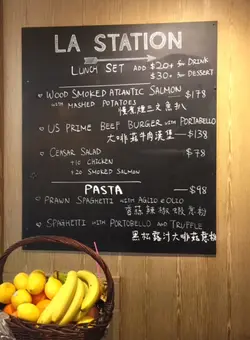 LA STATION
LUNCH SET ADD $20+ for DRINK
$30+ for DESSERT
WOOD SMOKED ATLANTIC SALMON $178
WITH MASHED POTATOES
慢煮煙三文魚扒
US PRIME BEEF BURGER WITH PORTABELLO
大啡菇牛肉漢堡 — $138
CEASAR SALAD $78
+10 CHICKEN
+20 SMOKED SALMON
PASTA — $98
PRAWN SPAGHETTI WITH AGLIO E OLIO
蒜辣椒蝦意粉
SPAGHETTI WITH PORTOBELLO AND TRUFFLE
黑松露汁大啡菇意粉